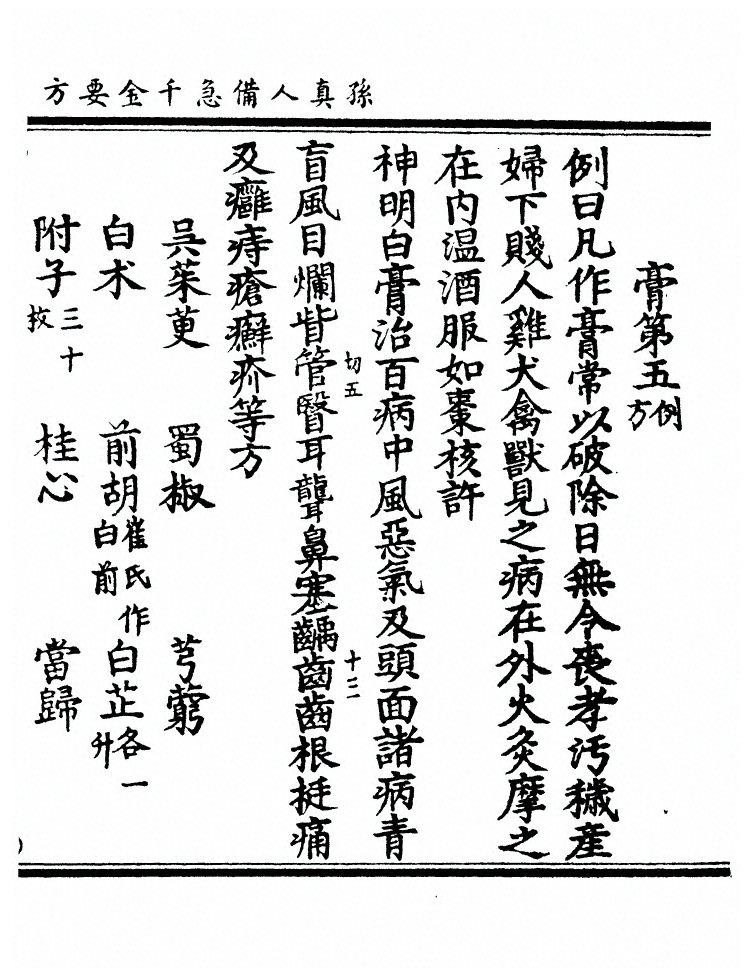 孫真人備急千金要方
膏第五例方
例曰凡作膏常以破除日無令喪孝污穢產
婦下賤人雞犬禽獸見之病在外火灸摩之
在内温酒服如棗核許
神明白膏治百病中風惡氣及頭面諸病青
切五 十二
盲風目爛眥管翳耳聾鼻塞齲齒齒根挺痛
及癰痔瘡癬疥等方
吳茱萸 蜀椒 芎藭
白术 前胡崔氏作白前 白芷各一升
附子三十枚 桂心 當歸